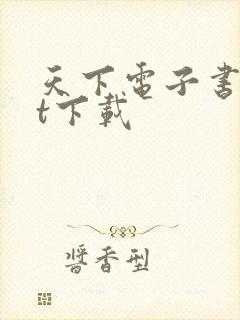 天下電子書
t下載
醬香型